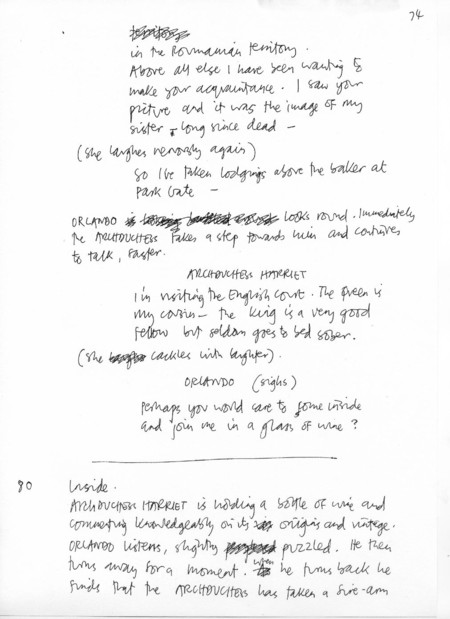 74
in the Roumanian territory.
Above all else I have been wanting to
make your acquaintance. I saw your
picture and it was the image of my
sister - long since dead -
(she laughes nervously again)
So I've taken lodgings above the baker at
Park Gate -
ORLANDO looks round. Immediately
the ARCHDUCHESS takes a step towards him and continues
to talk, faster.
ARCHDUCHESS HARRIET
I'm visiting the English Court. The Queen is
my cousin - the King is a very good
fellow but seldom goes to bed sober.
(she cackles with laughter).
ORLANDO (sighs)
Perhaps you would care to come inside
and join me in a glass of wine?
80 Inside.
ARCHDUCHESS HARRIET is holding a bottle of wine and
commenting knowledgeably on its origins and vintage.
ORLANDO listens, slightly puzzled. He then
turns away for a moment. When he turns back he
finds that the ARCHDUCHESS has taken a fire-arm